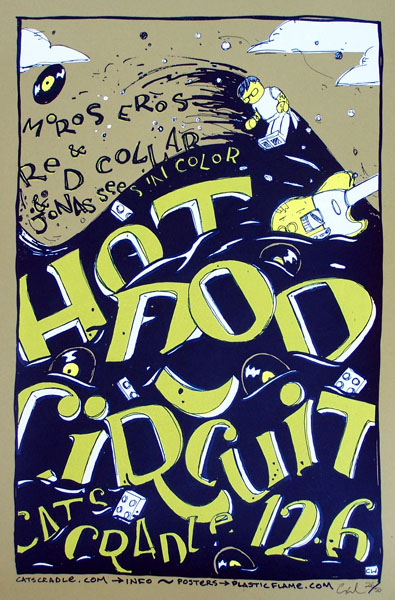 MOROS EROS
RE &
& D COLLAR
JONAS SEES IN COLOR
HOT
ROD
CIRCUIT
CAT'S
CRADLE 12.6
CW
CATSCRADLE.COM → INFO ~ POSTERS → PLASTICFLAME.COM